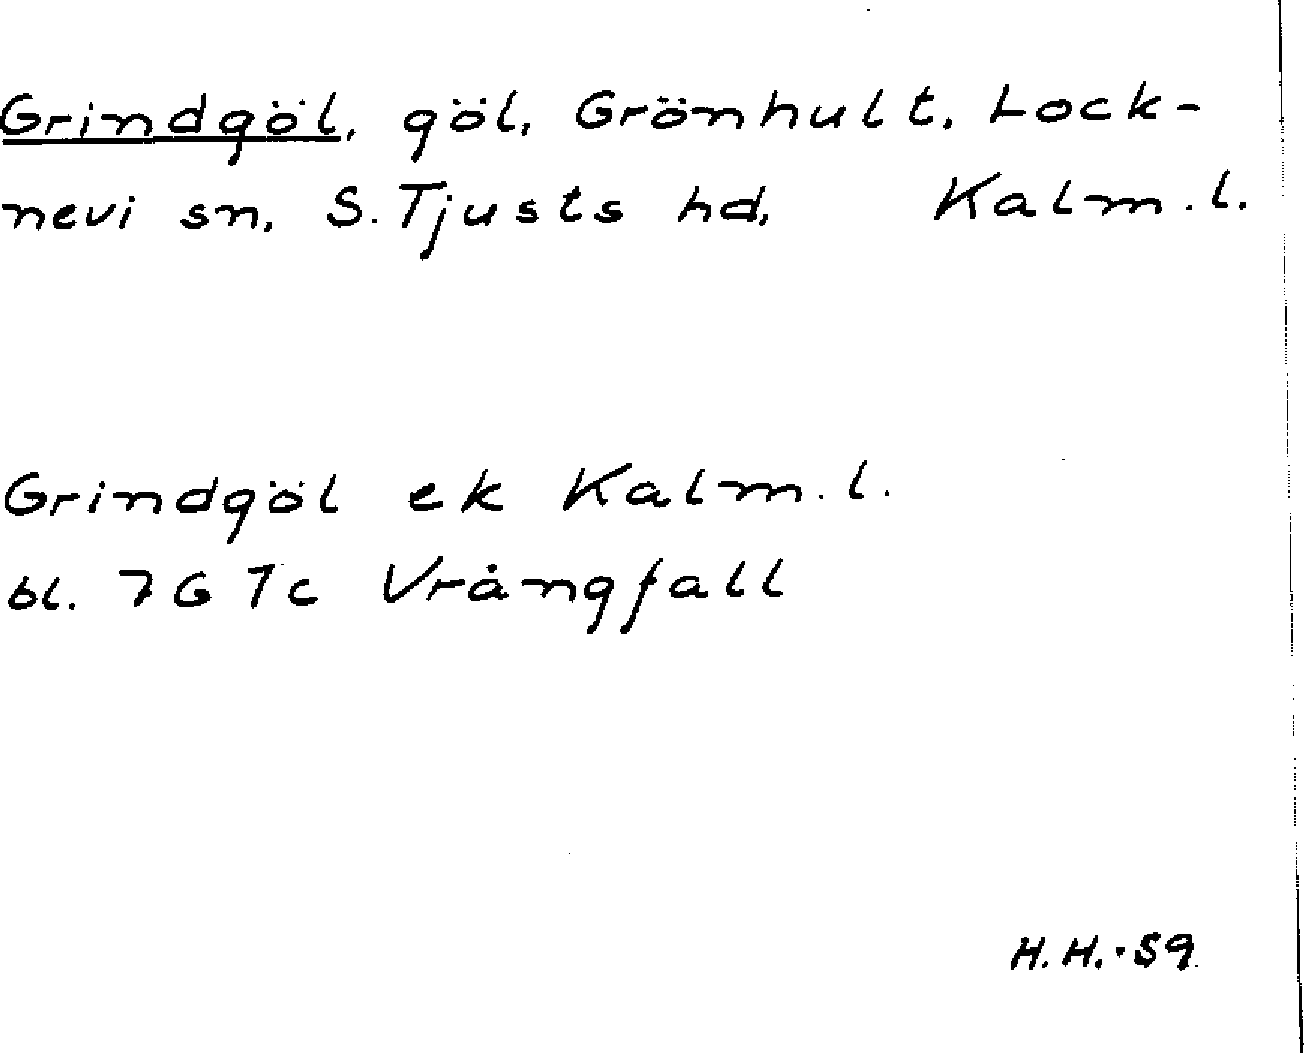 Grindgöl, göl, Grönhult, Lock-
nevi sn, S. Tjusts hd, Kalm. l.
Grindgöl ek Kalm. l.
bl. 7G 7c Vrångfall
H. H. · 59